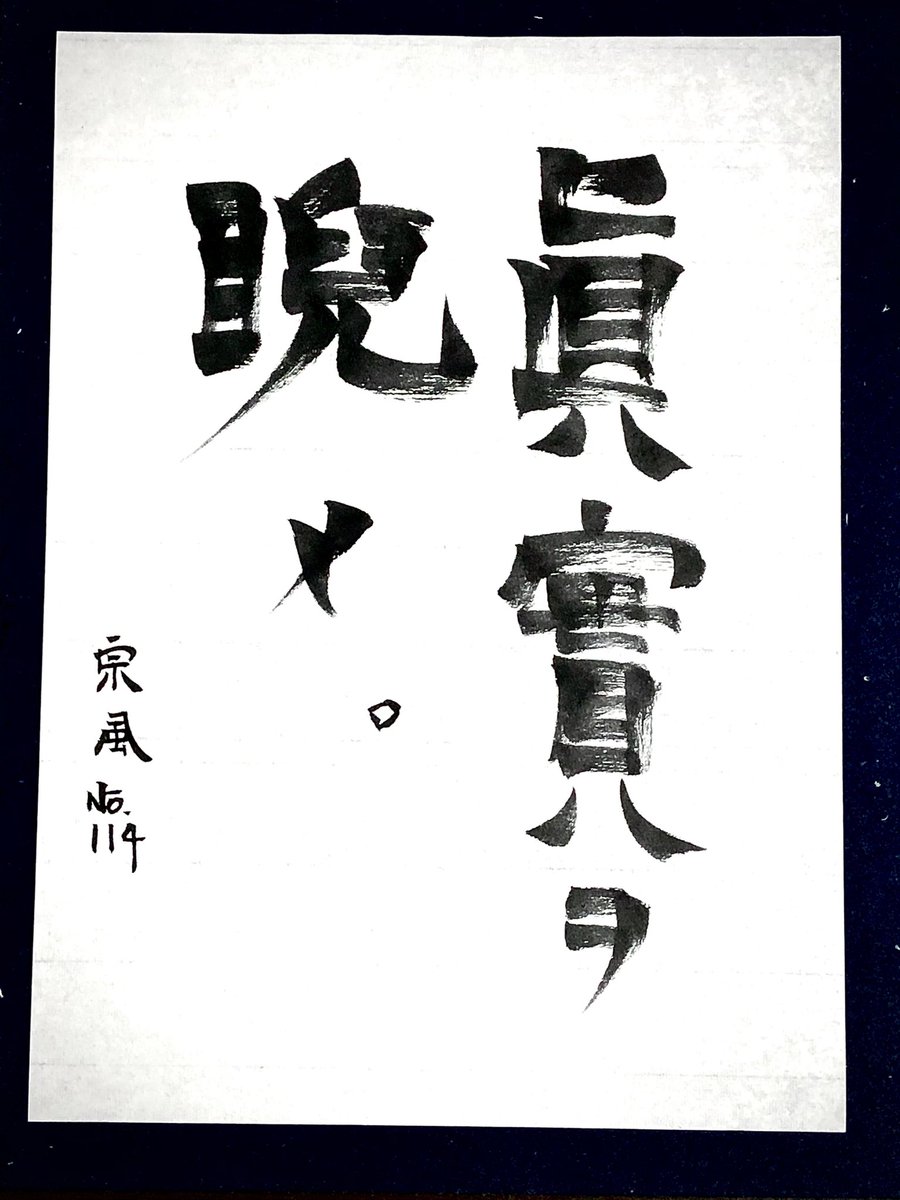 眞實ヲ
睨メ。
宗風
No.
114